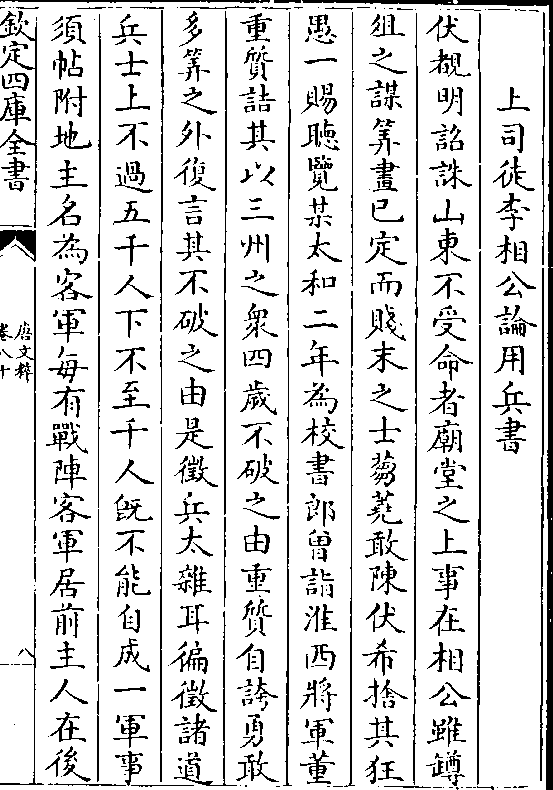 上司徒李相公論用兵書
伏覩明詔誅山東不受命者廟堂之上事在相公雖罇
俎之謀筭畫已定而賤末之士蒭蕘敢陳伏希捨其狂
愚一賜聽覽某太和二年為校書郎曾詣淮西將軍董
重質詰其以三州之衆四歲不破之由重質自誇勇敢
多筭之外復言其不破之由是徵兵太雜耳徧徵諸道
兵士上不過五千人下不至千人既不能自成一軍事
須帖附地主名為客軍每有戰陣客軍居前主人在後
欽定四庫全書
唐文粹
卷八十
八